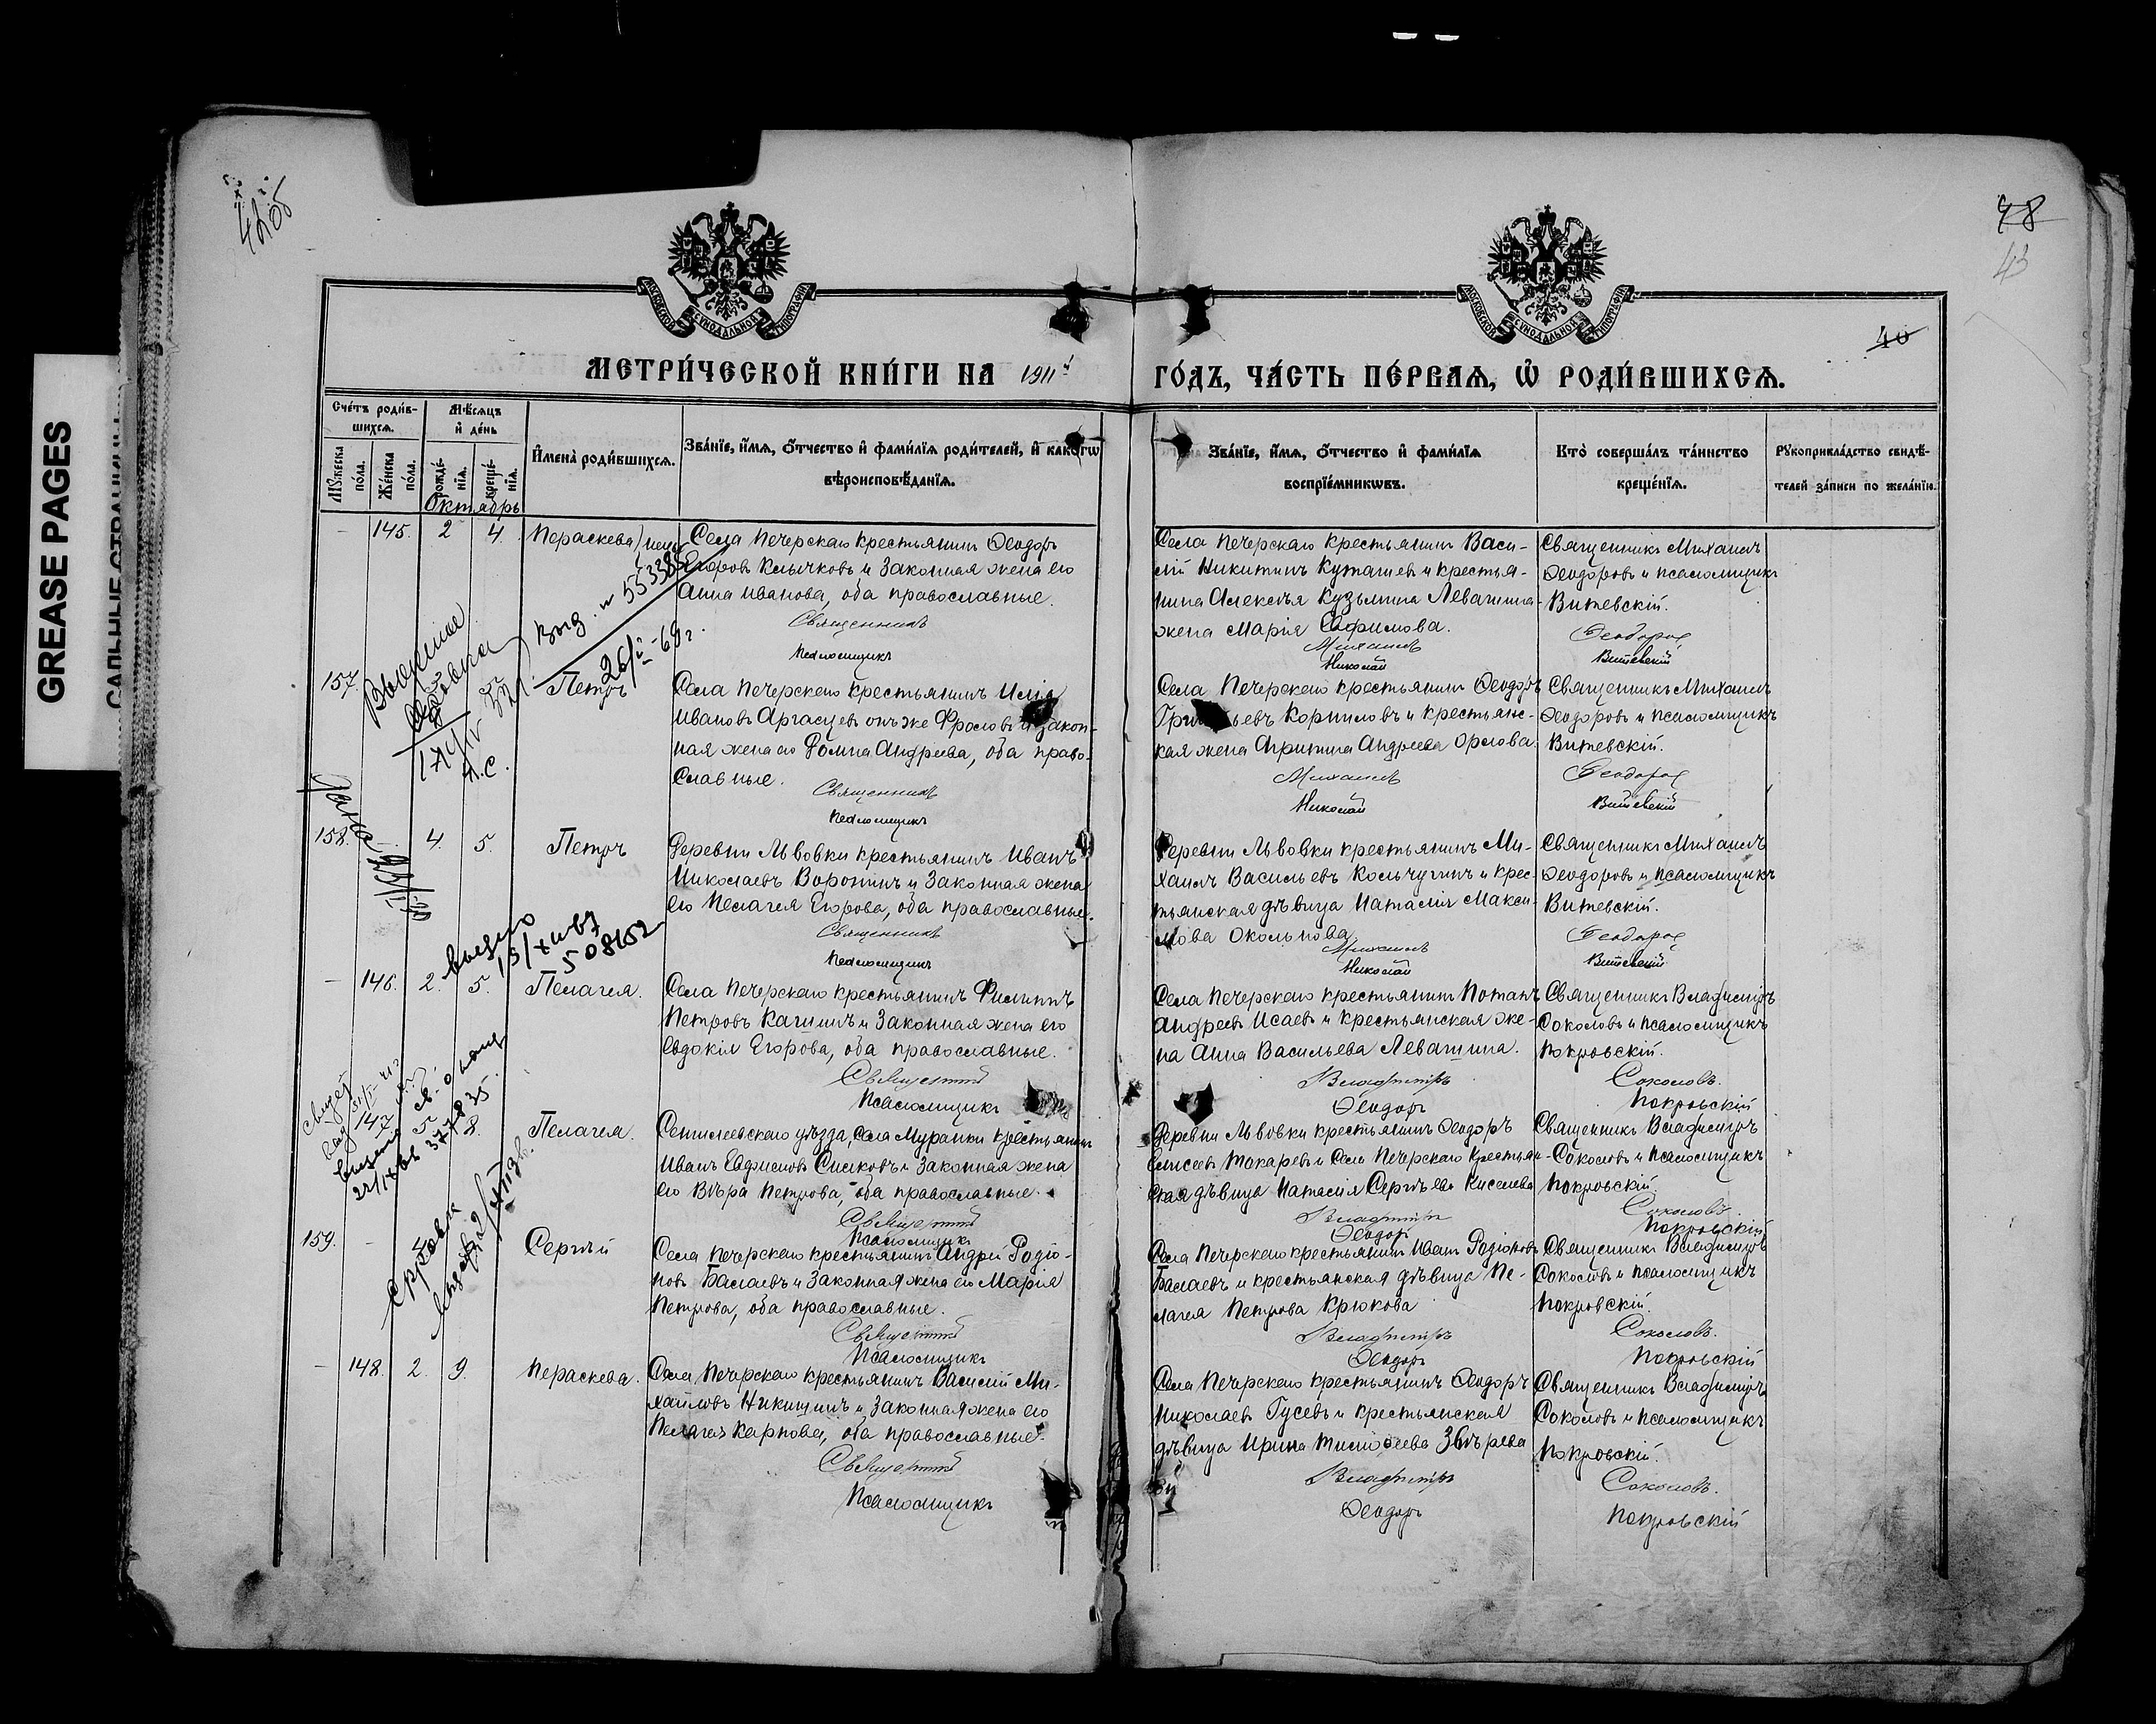 GREASE PAGES
САЛЬНЫЕ СТРАНИЦЫ
42об
48
43
40
МОСКОВСКОЙ СѴНОДАЛЬНОЙ ТИПОГРАФІИ
МОСКОВСКОЙ СѴНОДАЛЬНОЙ ТИПОГРАФІИ
МЕТРИ́ЧЕСКОЙ КНИ́ГИ НА 1911й
ГО́ДЪ, ЧА́СТЬ ПЕ́РВАЯ, Ѽ РОДИ́ВШИХСЯ.
Сче́тъ роди́в-
шихся.
Мꙋ́жеска по́ла.
Же́нска по́ла.
Мѣ́сяцъ
и҆ де́нь
рожде́-
нїя.
креще́-
нїя.
И҆мена̀ роди́вшихся.
Зва́нїе, и҆́мя, ѻ҆́тчество и҆ фами́лїя роди́телей, и҆ како́гѡ
вѣроисповѣ́данїя.
Зва́нїе, и҆́мя, ѻ҆́тчество и҆ фами́лїя
воспрїе́мникѡвъ.
Кто̀ соверша́лъ та́инство
креще́нїя.
Рꙋкоприкла́дство свидѣ́-
телей за́писи по жела́нїю.
Октябрь
– 145. 2 4. Параскева
Села Печерскаго крестьянинъ Ѳеодоръ
Егоровъ Клычковъ и законная жена его
Анна Иванова, оба православные.
Священникъ
Псаломщикъ
Села Печерскаго крестьянинъ Васи-
лій Никитинъ Куташевъ и крестья-
нина Алексѣя Кузьмина Левашина
жена Марія Ефимова.
Михаилъ
Николай
Священникъ Михаилъ
Ѳеодоровъ и псаломщикъ
Витевскій.
Ѳеодоровъ
Витевскій
выд. 553386
26/ 68 г.
157. Петръ
Села Печерскаго крестьянинъ Илія
Ивановъ Аргасцевъ онъ же Фроловъ и закон-
ная жена его Домна Андреева, оба право-
славные.
Священникъ
Псаломщикъ
Села Печерскаго крестьянинъ Ѳеодоръ
Григорьевъ Корниловъ и крестьянс-
кая жена Агрипина Андреева Орлова.
Михаилъ
Николай
Священникъ Михаилъ
Ѳеодоровъ и псаломщикъ
Витевскій.
Ѳеодоровъ
Витевскій
158. 4. 5. Петръ
Деревни Львовки крестьянинъ Иванъ
Николаевъ Воронинъ и законная жена
его Пелагея Егорова, оба православные.
Священникъ
Псаломщикъ
Деревни Львовки крестьянинъ Ми-
хаилъ Васильевъ Кольчугинъ и крес-
тьянская дѣвица Наталія Макси-
мова Окольнова
Михаилъ
Николай
Священникъ Михаилъ
Ѳеодоровъ и псаломщикъ
Витевскій.
Ѳеодоровъ
Витевскій
508152
– 146. 2. 5. Пелагея.
Села Печерскаго крестьянинъ Филиппъ
Петровъ Качинъ и законная жена его
Евдокія Егорова, оба православные.
Священникъ
Псаломщикъ
Села Печерскаго крестьянинъ Потапъ
Андреевъ Исаевъ и крестьянская же-
на Анна Васильева Левашина.
Владиміръ
Ѳеодоръ
Священникъ Владиміръ
Соколовъ и псаломщикъ
Покровскій.
Соколовъ.
Покровскій
147 8. Пелагея.
Сенгилеевскаго уѣзда, села Муранки крестьянинъ
Иванъ Евфимовъ Силковъ и законная жена
его Вѣра Петрова, оба православные.
Священникъ
Псаломщикъ
Деревни Львовки крестьянинъ Ѳеодоръ
Елисеевъ Токаревъ и села Печерскаго крестьян-
ская дѣвица Наталія Сергѣева Киселева
Владиміръ
Ѳеодоръ
Священникъ Владиміръ
Соколовъ и псаломщикъ
Покровскій
Соколовъ.
Покровскій
159. – Сергѣй
Села Печерскаго крестьянинъ Андрей Родіо-
новъ Балаевъ и законная жена его Марія
Петрова, оба православные.
Священникъ
Псаломщикъ
Села Печерскаго крестьянинъ Иванъ Родіоновъ
Балаевъ и крестьянская дѣвица Пе-
лагея Петрова Крюкова
Владиміръ
Ѳеодоръ
Священникъ Владиміръ
Соколовъ и псаломщикъ
Покровскій.
Соколовъ.
Покровскій
– 148. 2. 9. Параскева.
Села Печерскаго крестьянинъ Василій Ми-
хайловъ Никишинъ и законная жена его
Пелагея Карпова, оба православные.
Священникъ
Псаломщикъ
Села Печерскаго крестьянинъ Ѳеодоръ
Николаевъ Гусевъ и крестьянская
дѣвица Ирина Тимоѳеева Звѣрева
Владиміръ
Ѳеодоръ
Священникъ Владиміръ
Соколовъ и псаломщикъ
Покровскій.
Соколовъ.
Покровскій